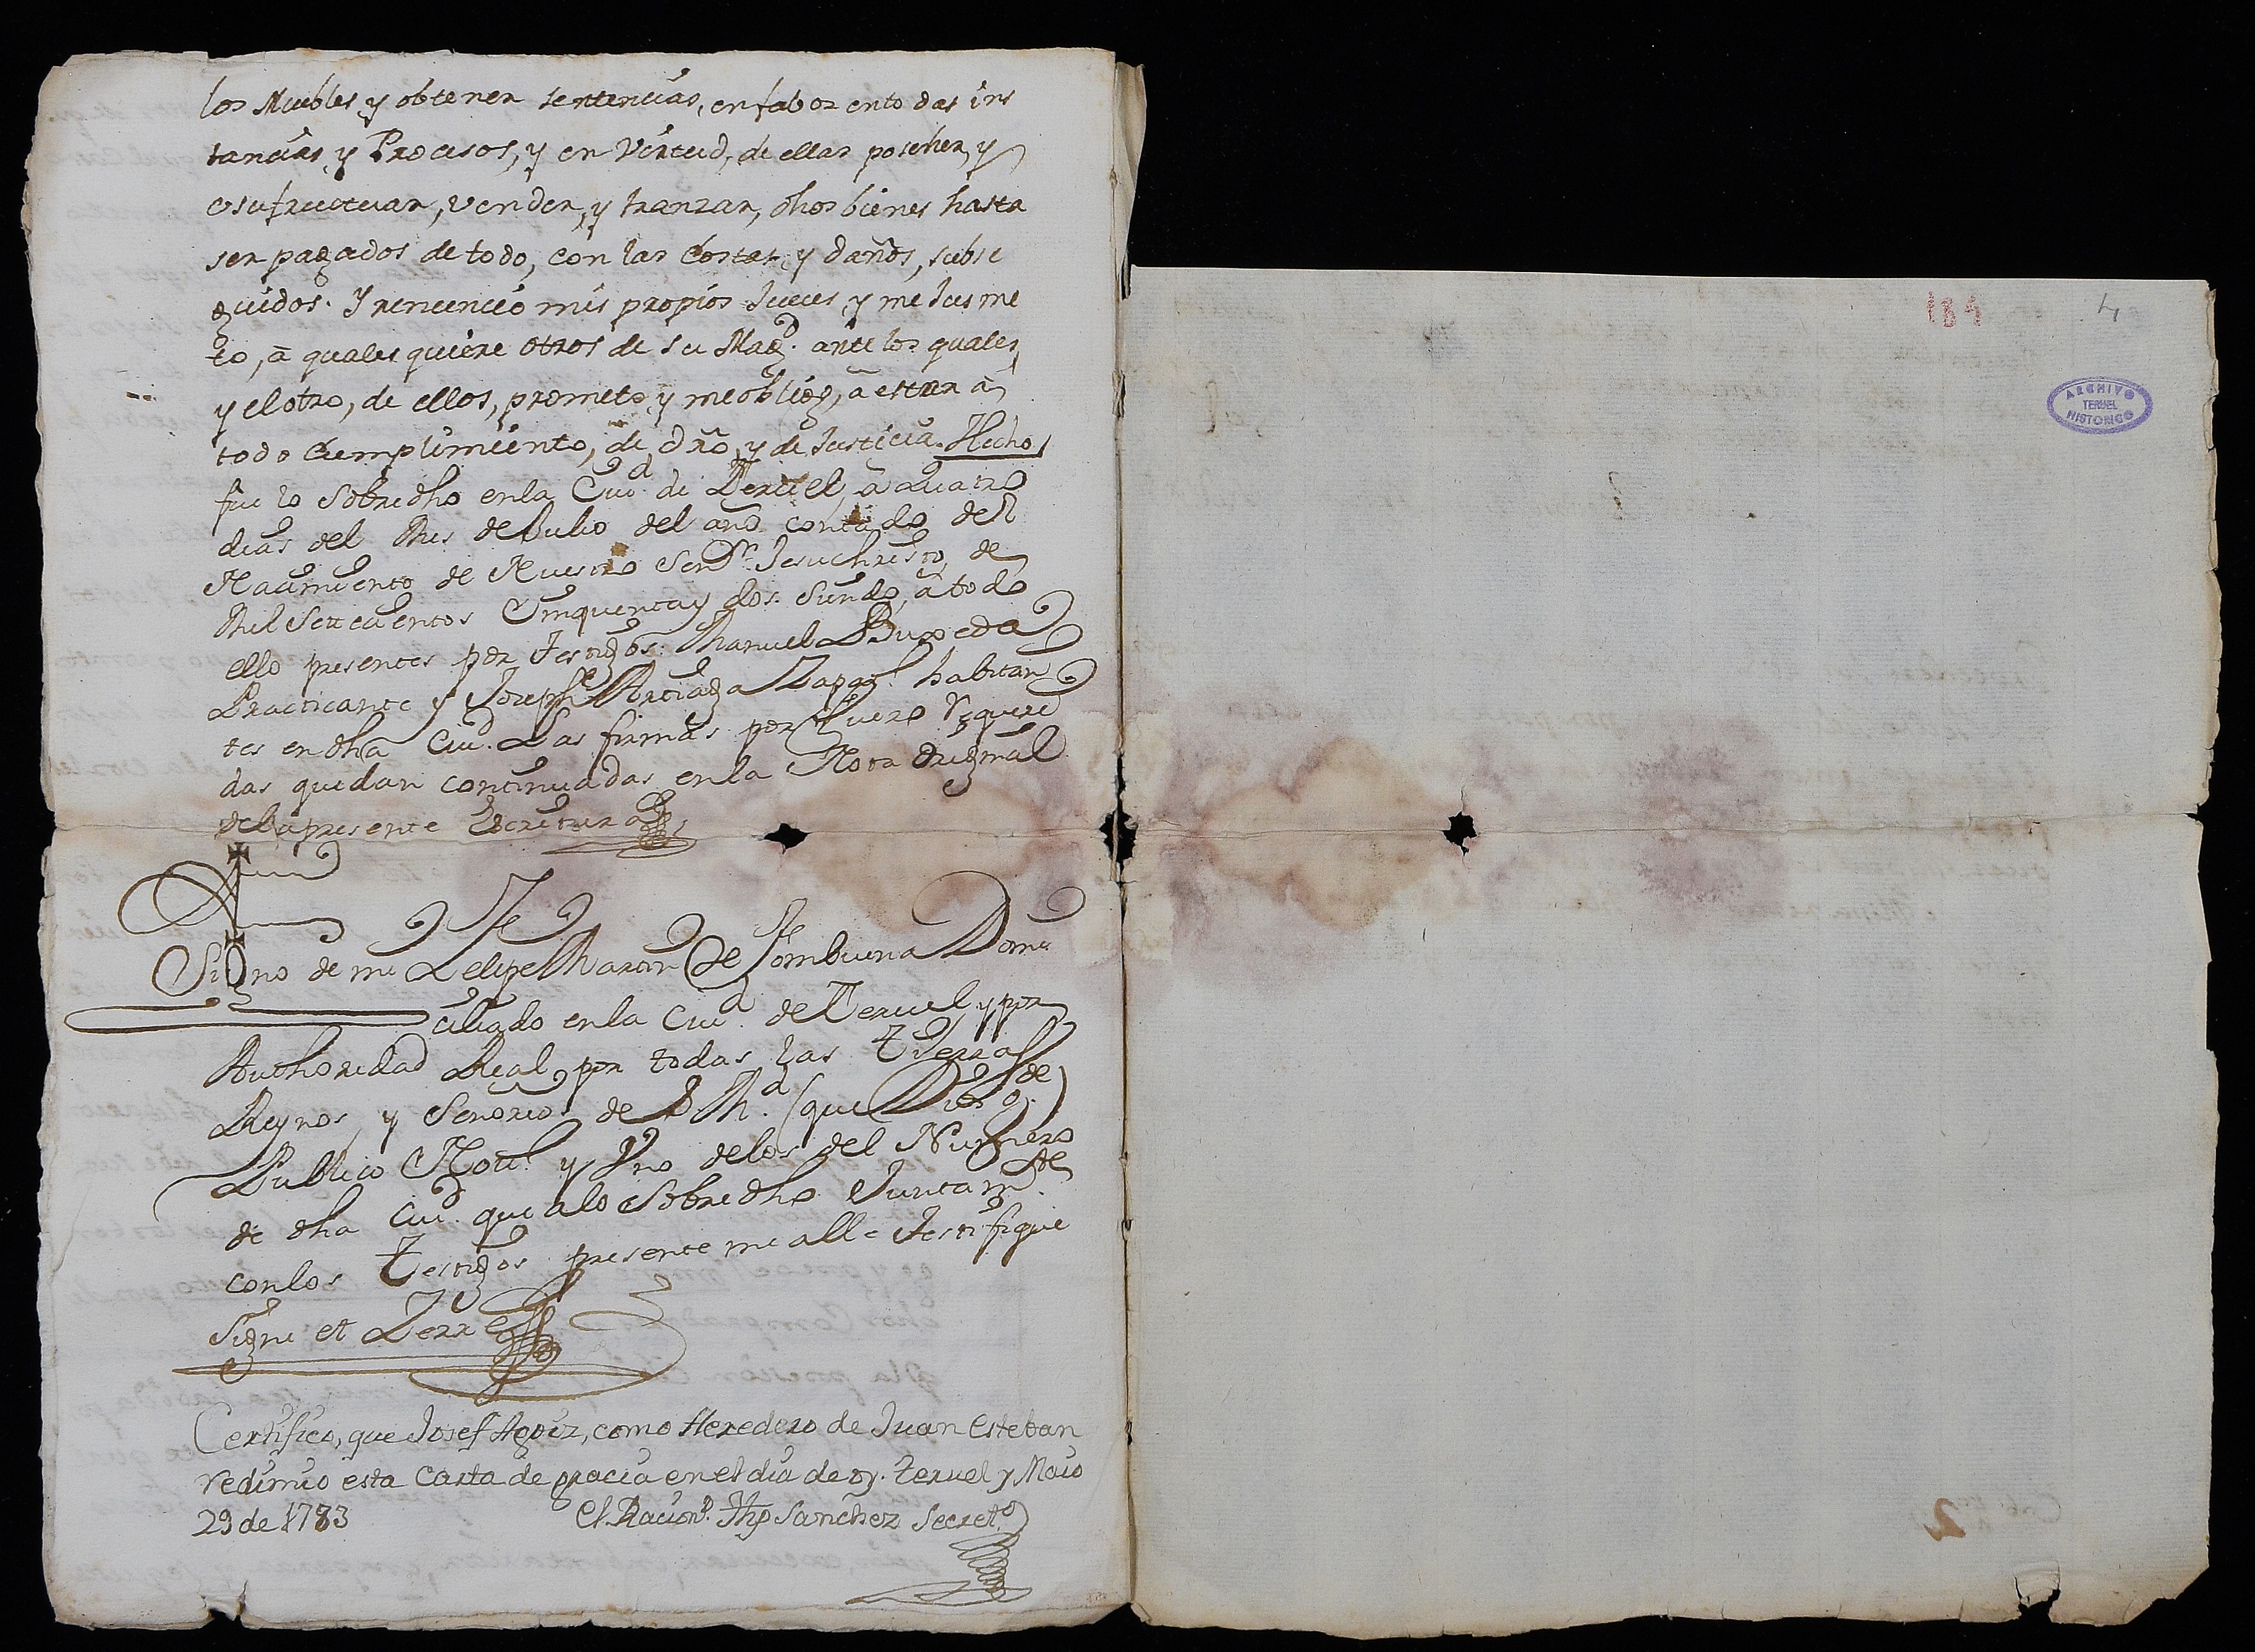 los Muebles y obtener sentencias, en fabor en todas ins
tancias y Procesos, y en Virtud, de ellas poseher y
usufructuar, vender, y tranzar, dhos bienes hasta
ser pagados de todo, con las Costas y daños, subse
guidos. Y renuncio mis propios Jueces y me Jusme
to, â quales quiere otros de su Magd. ante los quales
y el otro, de ellos, prometo y me obligo, â estar â
todo Cumplimiento, de dro, y de Justicia. Hecho
fue lo Sobredho en la Ciud. de Teruel, â quatro
dias del Mes de Julio del año contado del
Nacimiento de Nuestro Señr. Jesuchristo, de
Mil Settecientos Cinquenta y dos. Siendo, â todo
ello presentes por Testigos: Manuel Buxeda
Practicante y Joseph Artiaga Zapatr. habitan
tes en dha Ciud. Las firmas por fuero requeri
das quedan continuadas en la Nota Original
de la presente Escritura
Signo de mi Felipe Martin de Fombuena Domi
ciliado en la Ciud. de Teruel y por
Authoridad Real por todas las Tierras
Reynos, y Señorios de S. Md. (que Dios gde.)
Publico Nott. y Uno de los del Numero
de dha Ciud. que a lo Sobredho Juntamte.
con los Testigos presente me alle Testifique
Signe et Zerre
Certifico, que Josef Agoiz, como Heredero de Juan Esteban
redimio esta Carta de gracia en el dia de oy. Teruel y Maio
29 de 1783 El Racionº. Sanchez Secretº
184
4
ARCHIVO
TERUEL
HISTORICO
2